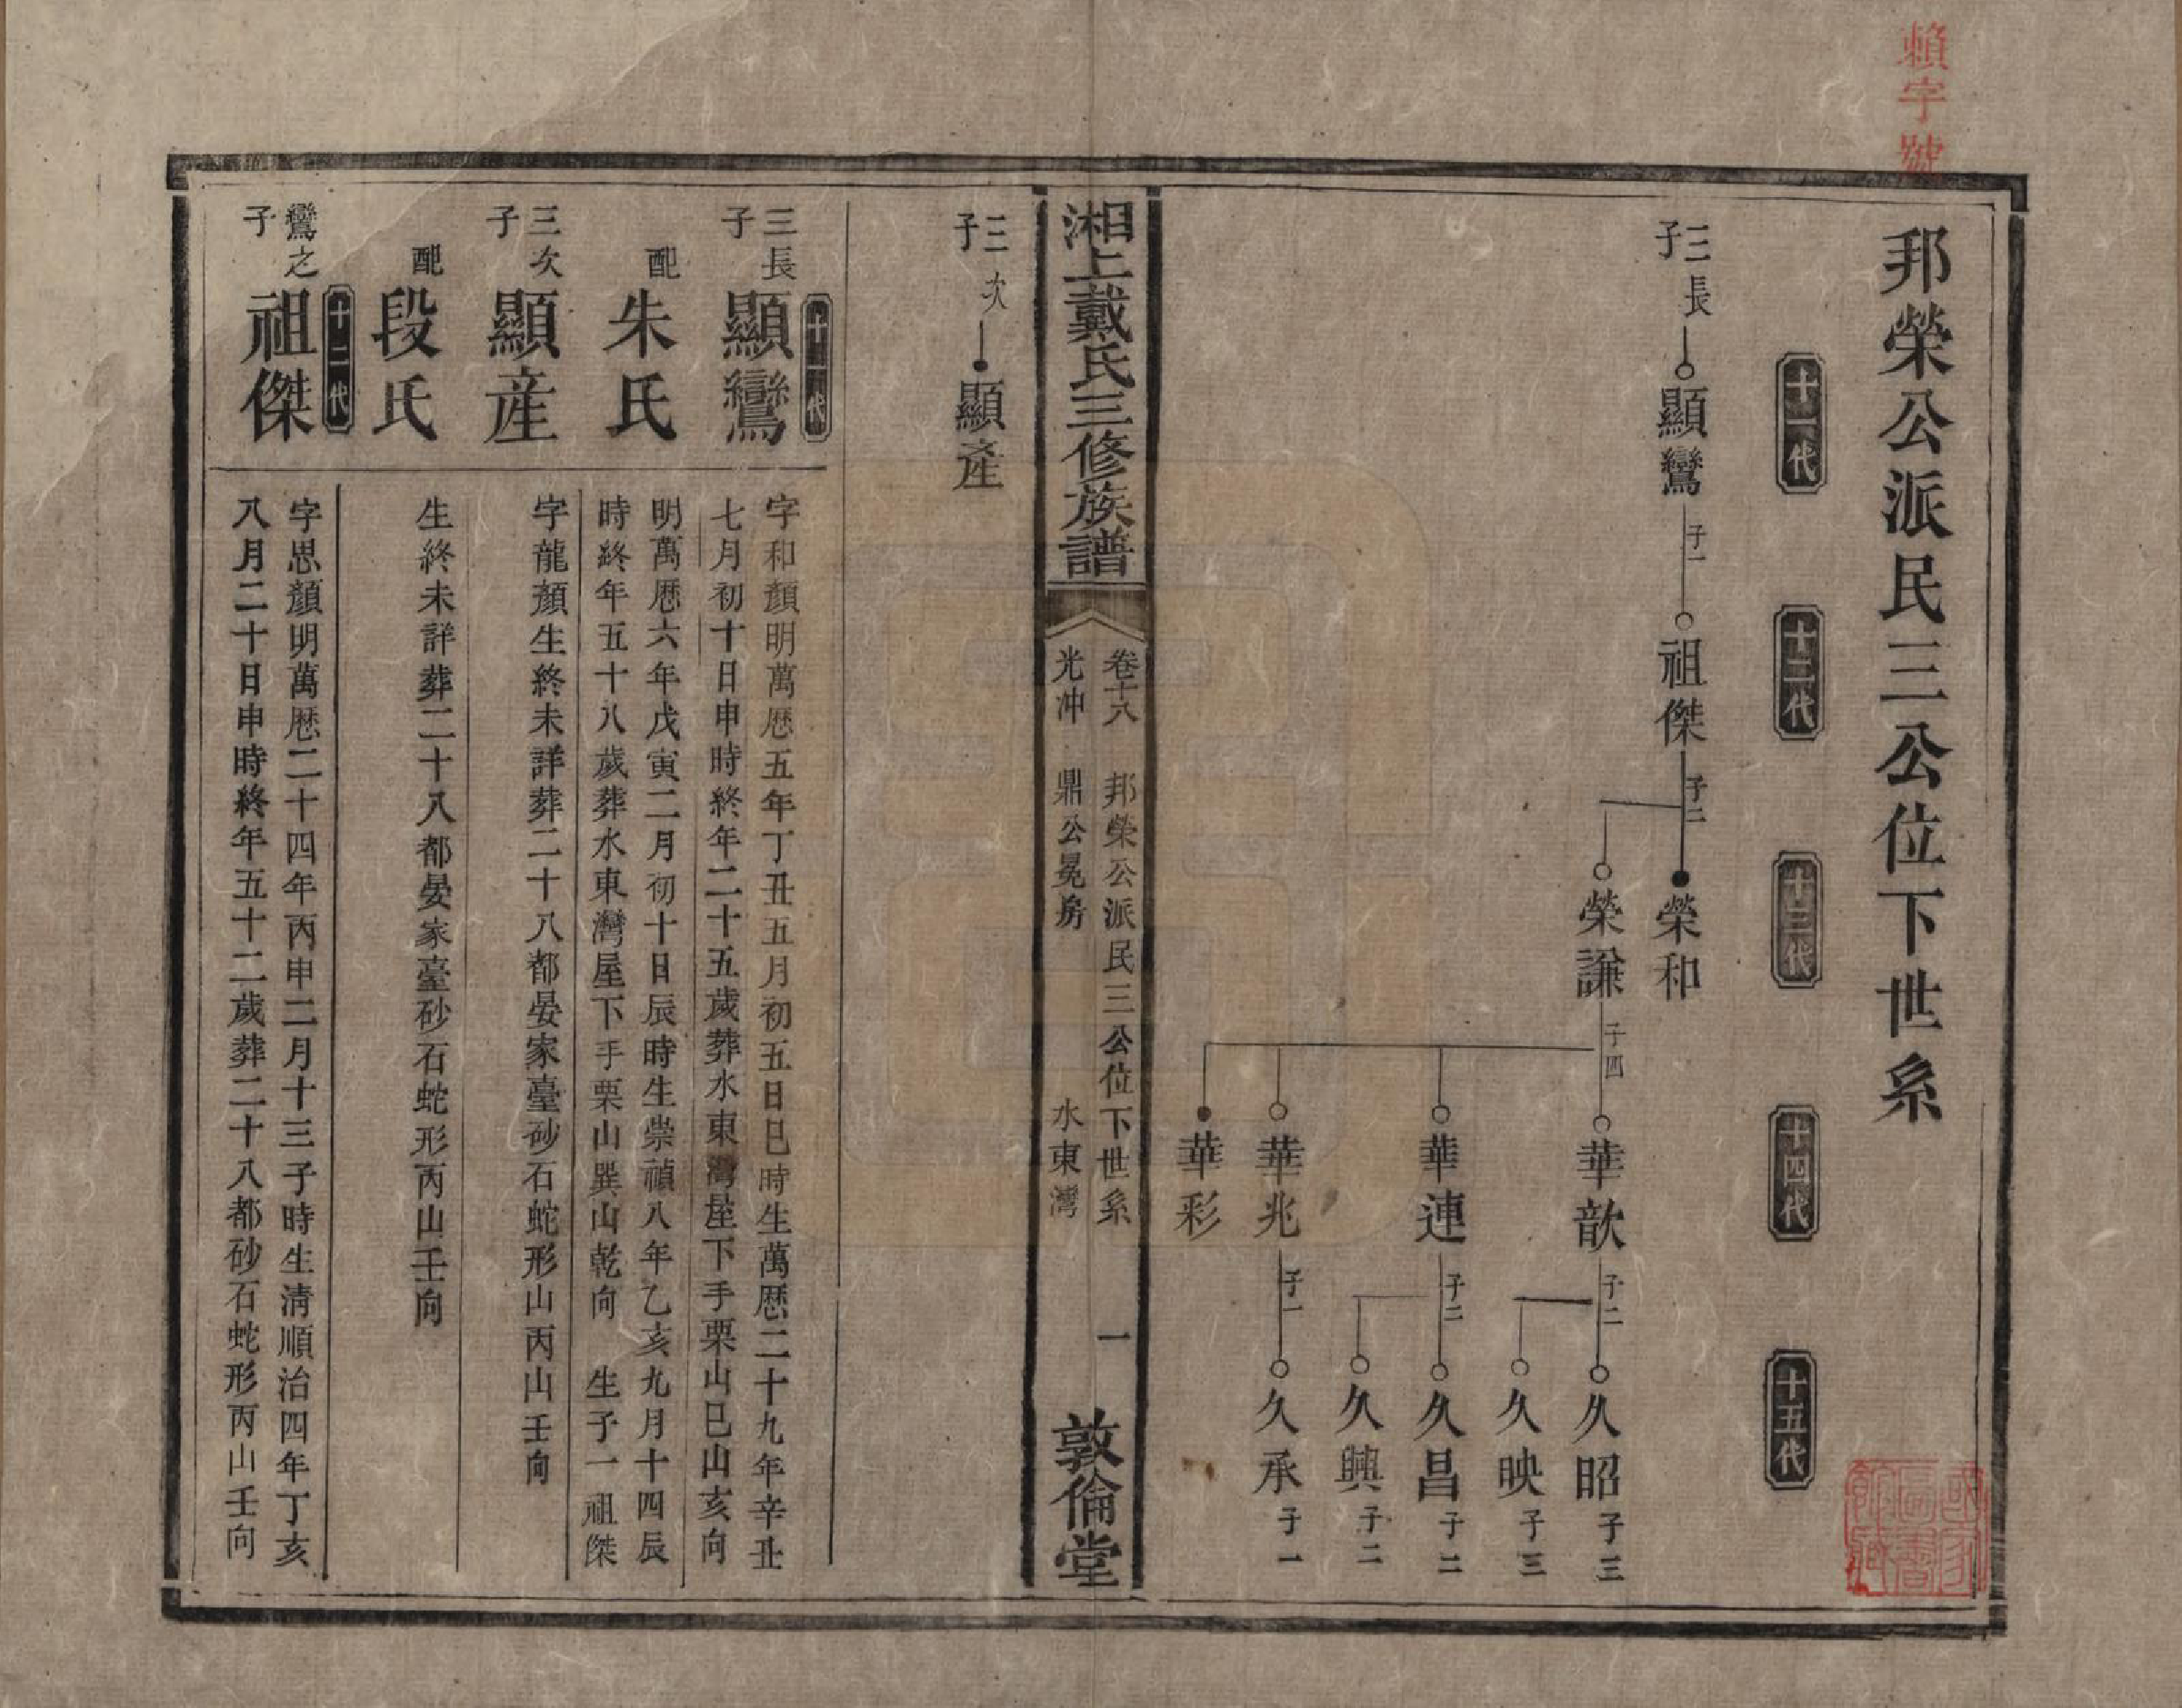 賴字號
邦榮公派民三公位下世系
十一代
十二代
十三代
十四代
十五代
三長子
顯鸞
子一
祖傑
子二
榮和
榮謙
子四
華歆
子二
久昭
子三
久映
子三
華連
子二
久昌
子二
久興
子二
華兆
子一
久承
子一
華彩
湘上戴氏三修族譜
卷十八
邦榮公派民三公位下世系
一
光冲
鼎公冕房
水東灣
敦倫堂
三次子
顯產
十一代
三長子
顯鸞
字和顏明萬厯五年丁丑五月初五日巳時生萬厯二十九年辛丑
七月初十日申時終年二十五歲葬水東灣屋下手栗山巳山亥向
配
朱氏
明萬厯六年戊寅二月初十日辰時生崇禎八年乙亥九月十四辰
時終年五十八歲葬水東灣屋下手栗山巽山乾向 生子一祖傑
三次子
顯產
字龍顏生終未詳葬二十八都晏家臺砂石蛇形山丙山壬向
配
段氏
生終未詳葬二十八都晏家臺砂石蛇形丙山壬向
十二代
鸞之子
祖傑
字思顏明萬厯二十四年丙申二月十三子時生清順治四年丁亥
八月二十日申時終年五十二歲葬二十八都砂石蛇形丙山壬向